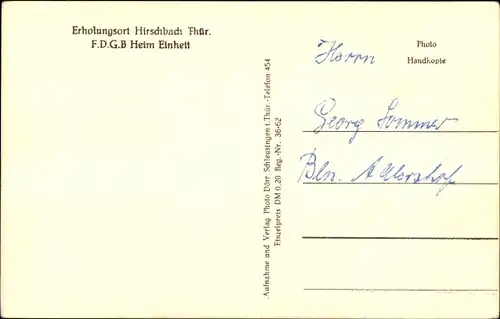 Erholungsort Hirschbach Thür.
F.D.G.B Heim Einheit
Aufnahme und Verlag Photo Dörr Schleusingen i.Thür.-Telefon 454
Einzelpreis DM 0,20 Reg.-Nr. 36-62
Photo
Handkopie
Herrn
Georg Sommer
Bln. Adlershof